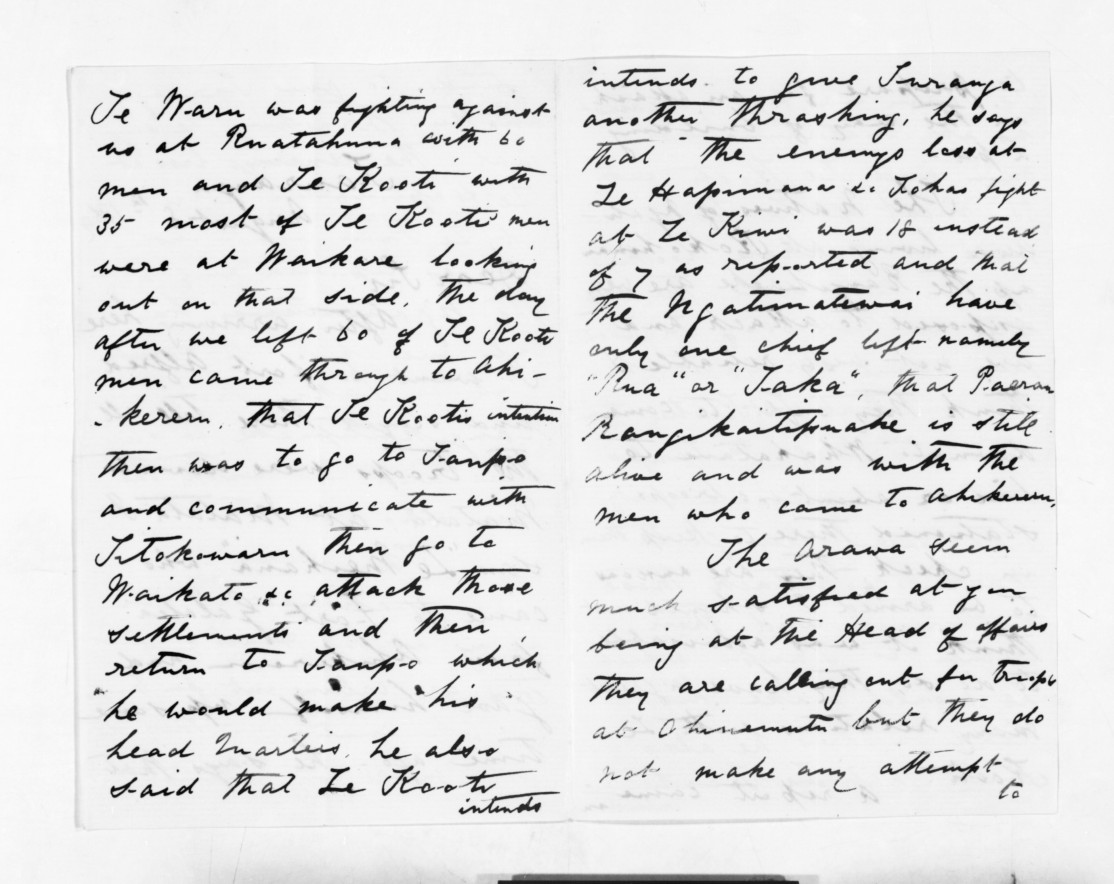 Te Waru was fighting against
us at Ruatahuna with 60
men and Te Kooti with
35 most of Te Kooti's men
were at Waikare looking
out on that side. The day
after we left 60 of Te Kooti
men came through to Ahi-
-kereru. that Te Kootis intention
then was to go to Taupo
and communicate with
Titokowaru then go to
Waikato &c attack those
settlements and then
return to Taupo which
he would make his
head Quarters. he also
said that Te Kooti
intends
intends to give Turanga
another thrashing, he says
that the enemys loss at
Te Hapimana &c Tokas fight
at Te Kiwi was 18 instead
of 7 as reported and that
the Ngatimatewai have
only one chief left namely
"Rua" or "Taka", that Paerau
Rangikaitipuake is still
alive and was with the
men who came to Ahikereru.
The Arawa seem
much satisfied at you
being at the Head of affairs
they are calling out for troops
at Ohinemutu but they do
not make any attempt
to